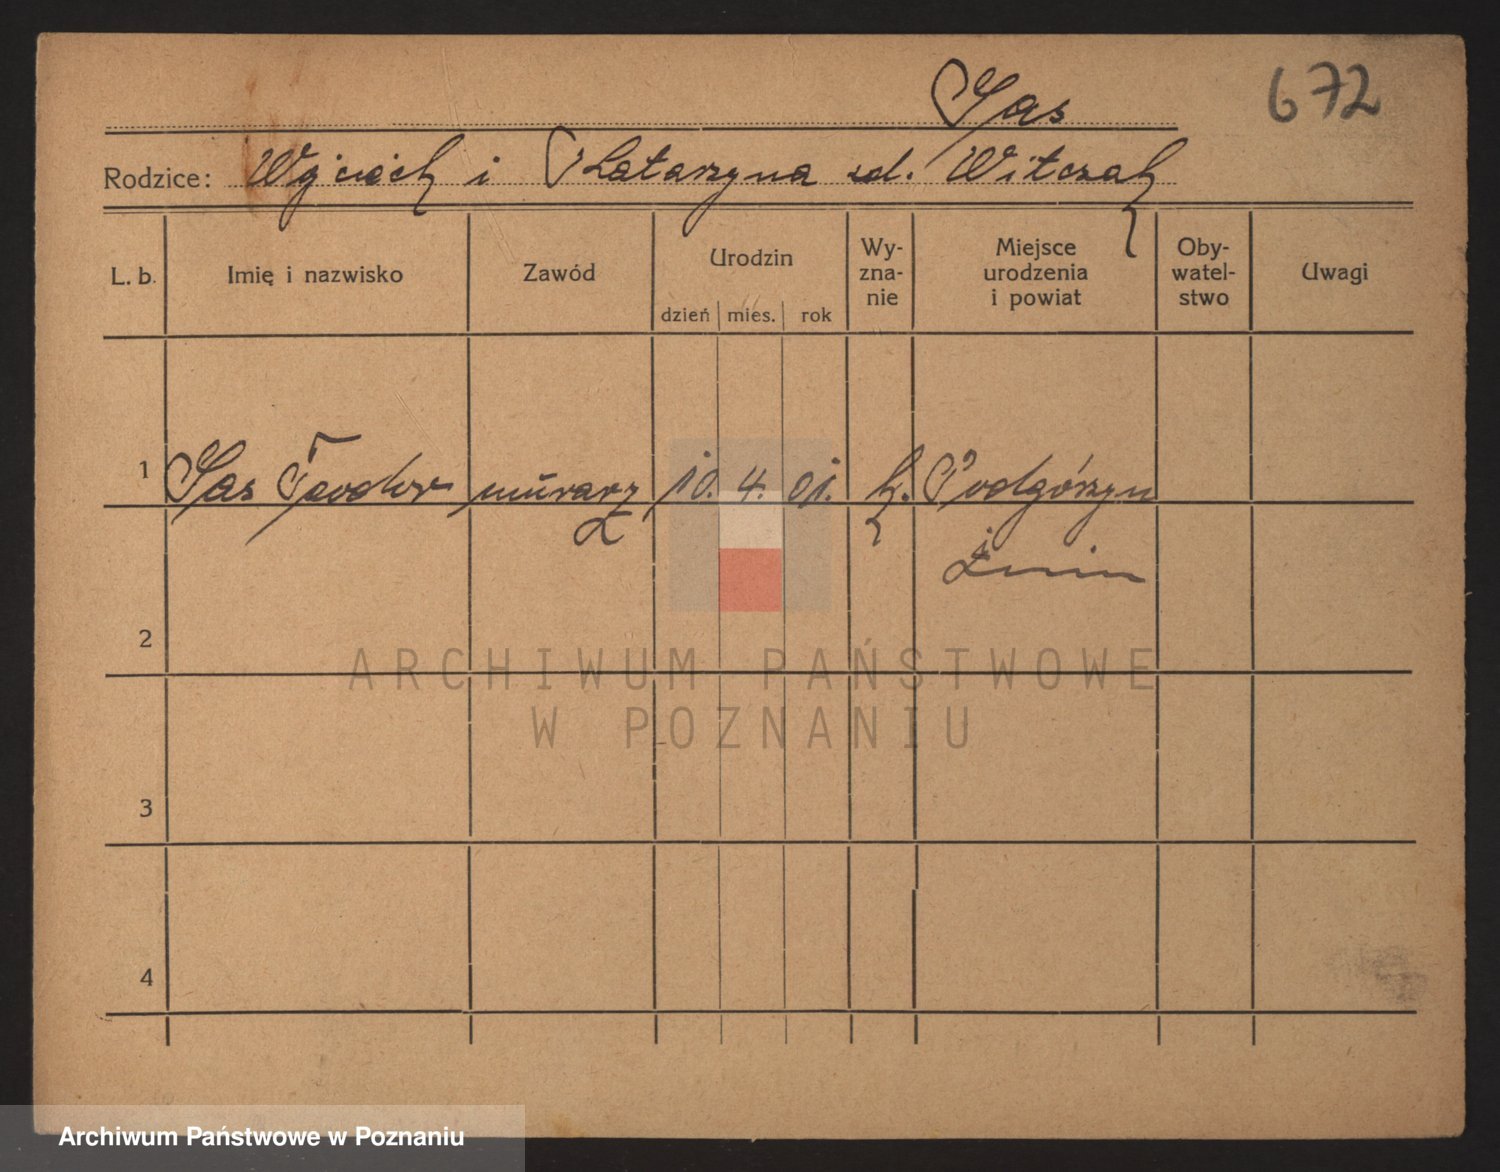 672
Sas
Rodzice: Wojciech i Katarzyna zd. Witczak
L. b. Imię i nazwisko Zawód Urodzin dzień mies. rok Wy-zna-nie Miejsce urodzenia i powiat Oby-watel-stwo Uwagi
1 Sas Teodor murarz 10. 4. 01. k. Podgórzyn
Żnin
2
ARCHIWUM PAŃSTWOWE
W POZNANIU
3
4
Archiwum Państwowe w Poznaniu